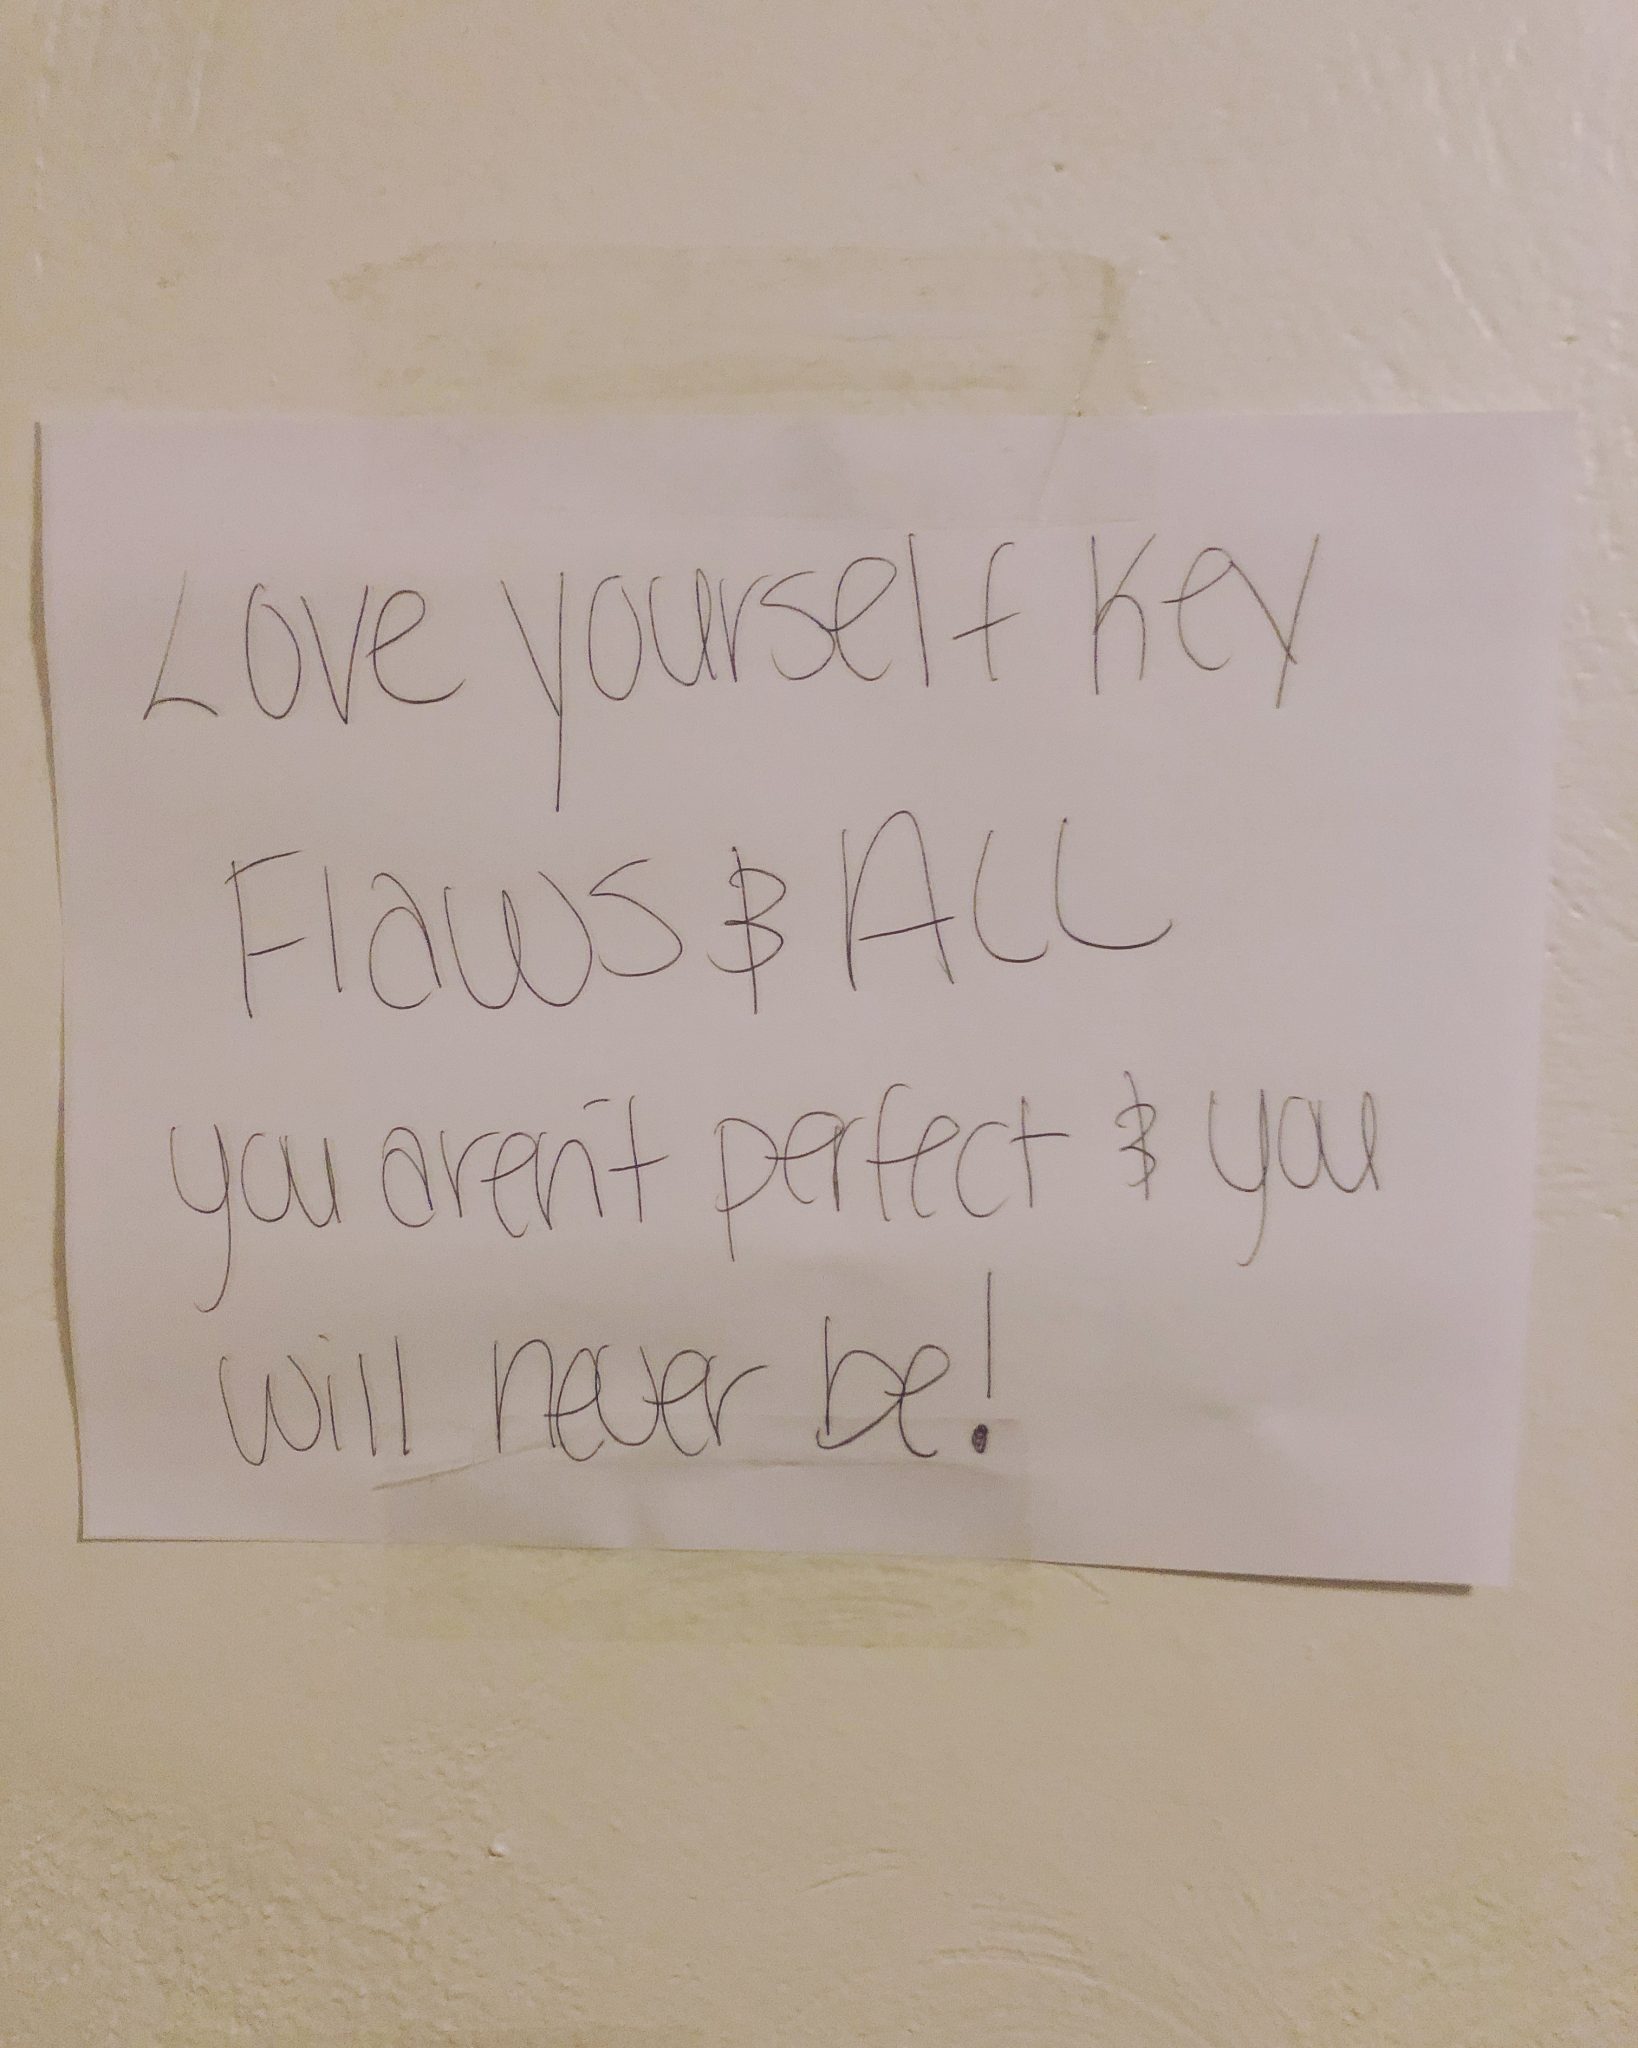 Love yourself Key
Flaws & ALL
you aren't perfect & you
will never be!